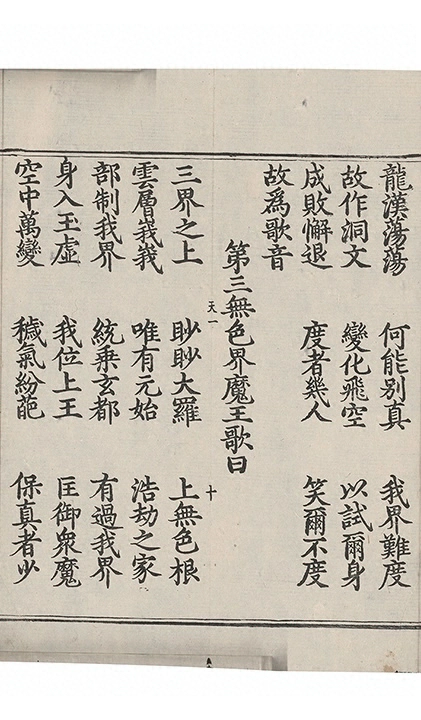 龍漢蕩蕩　何能別真　我界難度
故作洞文　變化飛空　以試爾身
成敗懈退　度者幾人　笑爾不度
故爲歌音
第三無色界魔王歌曰
天一　十
三界之上　眇眇大羅　上無色根
雲層峩峩　唯有元始　浩劫之家
部制我界　統乘玄都　有過我界
身入玉虛　我位上王　匡御衆魔
空中萬變　穢氣紛葩　保真者少